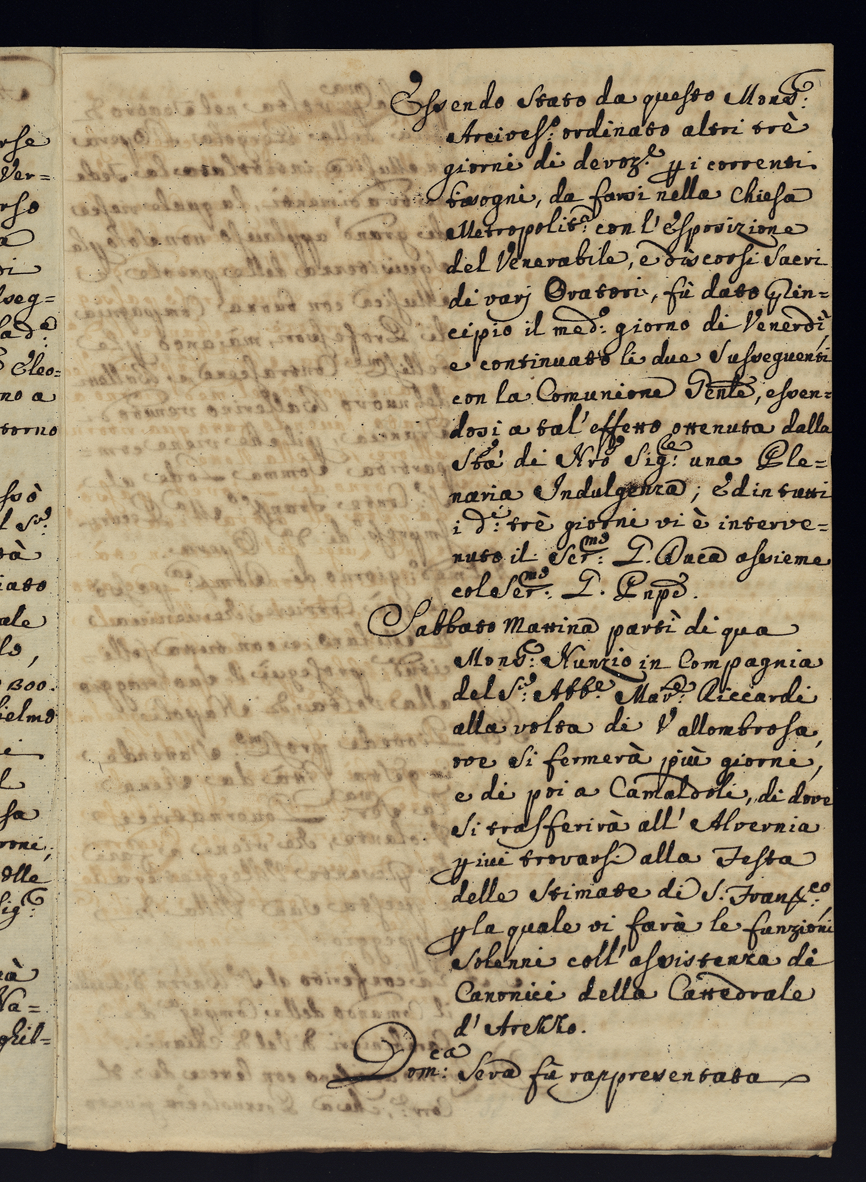 Essendo Stato da questo Mons.r
Arcivesc.o ordinato altri trè
giorni di devoz.e p i correnti
bisogni, da farsi nella Chiesa
Metropolit.a con l'Esposizione
del Venerabile, e discorsi Sacri
di varj Oratori, fù dato Prin=
cipio il med.o giorno di Venerdì
e continuato li due Susseguenti
con la Comunione Gen̄le, essen=
dosi a tal'effetto ottenuta dalla
Stā di Nrō Sig.re una Ple=
naria Indulgenza; Ed in tutti
i d.i trè giorni vi è interve=
nuto il Ser.mo G. Duca assieme
col Ser.mo G. Pnpē.
Sabbato Mattina partì di qua
Mons.r Nunzio in Compagnia
del S.r Abb.e Mar. Riccardi
alla volta di Vallombrosa,
ove Si fermerà più giorni,
e di poi a Camaldoli, di dove
Si trasferirà all'Alvernia
p ivi trovarsi alla Festa
delle Stimate di S. Franc.co,
p la quale vi farà le funzioni
Solenni coll'assistenza di
Canonici della Cattedrale
d'Arezzo.
Dom.ca Sera fù rappresentata
rse
Ver=
rso
a
di
sseg=
Eleo=
no a
torno
ssò
l S.r
tà
iato
ale
lo,
1300.
ielmo
e
l
sa
roni,
elle
Sig.
rà
Na=
ghil=